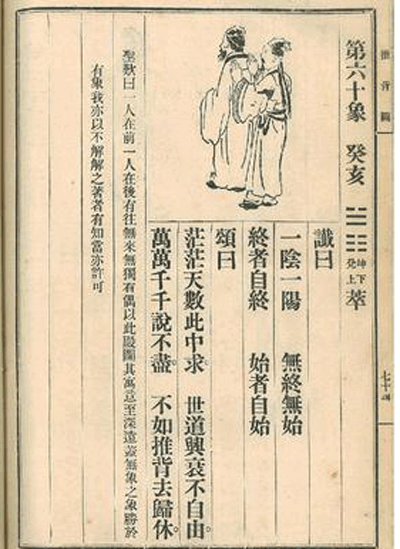 推背圖
七十四
第六十象 癸亥 坤下兌上 萃
讖曰
一陰一陽 無終無始
終者自終 始者自始
頌曰
茫茫天數此中求 世道興衰不自由。
萬萬千千說不盡。 不如推背去歸休。
聖歎曰一人在前一人在後有往無來無獨有偶以此殿圖其寓意至深遠蓋無象之象勝於
有象我亦以不解解之著者有知當亦許可